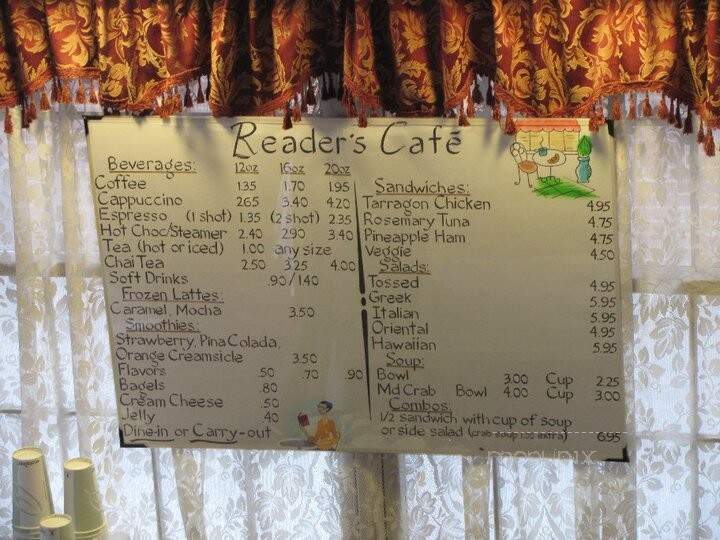 Reader's Café
Beverages: 12oz 16oz 20oz
Coffee 1.35 1.70 1.95
Cappuccino 2.65 3.40 4.20
Espresso (1 shot) 1.35 (2 shot) 2.35
Hot Choc/Steamer 2.40 2.90 3.40
Tea (hot or iced) 1.00 any size
Chai Tea 2.50 3.25 4.00
Soft Drinks .90/1.40
Frozen Lattes:
Caramel, Mocha 3.50
Smoothies:
Strawberry, Pina Colada,
Orange Creamsicle 3.50
Flavors .50 .70 .90
Bagels .80
Cream Cheese .50
Jelly .40
Dine-in or Carry-out
Sandwiches:
Tarragon Chicken 4.95
Rosemary Tuna 4.75
Pineapple Ham 4.75
Veggie 4.50
Salads:
Tossed 4.95
Greek 5.95
Italian 5.95
Oriental 4.95
Hawaiian 5.95
Soup:
Bowl 3.00 Cup 2.25
Md Crab Bowl 4.00 Cup 3.00
Combos:
1/2 sandwich with cup of soup
or side salad (crab soup 1.00 extra) 6.95
menupix